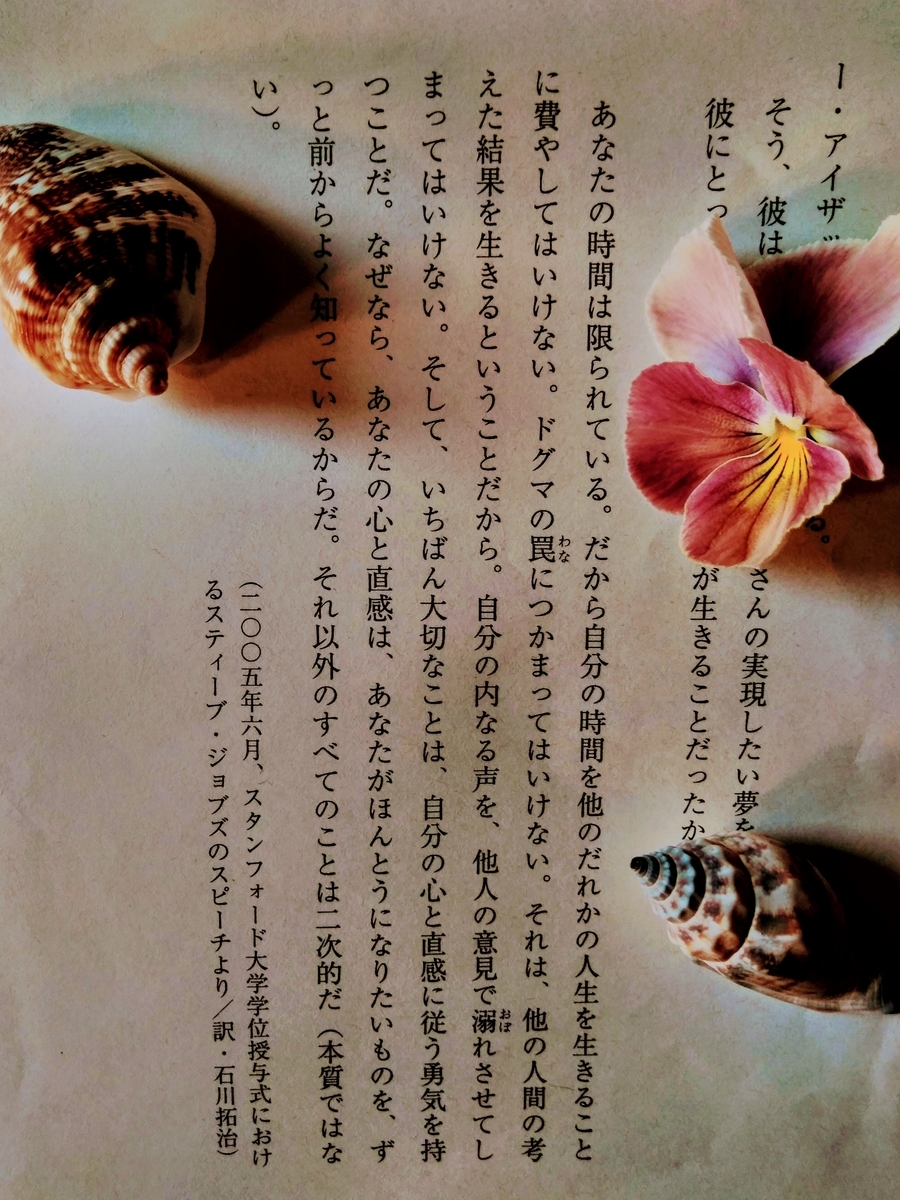 ー・アイザッ
そう、彼は
さんの実現したい夢を
彼にとっ
が生きることだったか
あなたの時間は限られている。だから自分の時間を他のだれかの人生を生きること
に費やしてはいけない。ドグマの罠わなにつかまってはいけない。それは、他の人間の考
えた結果を生きるということだから。自分の内なる声を、他人の意見で溺おぼれさせてし
まってはいけない。そして、いちばん大切なことは、自分の心と直感に従う勇気を持
つことだ。なぜなら、あなたの心と直感は、あなたがほんとうになりたいものを、ず
っと前からよく知っているからだ。それ以外のすべてのことは二次的だ（本質ではな
い）。
（二〇〇五年六月、スタンフォード大学学位授与式におけ
るスティーブ・ジョブズのスピーチより／訳・石川拓治）